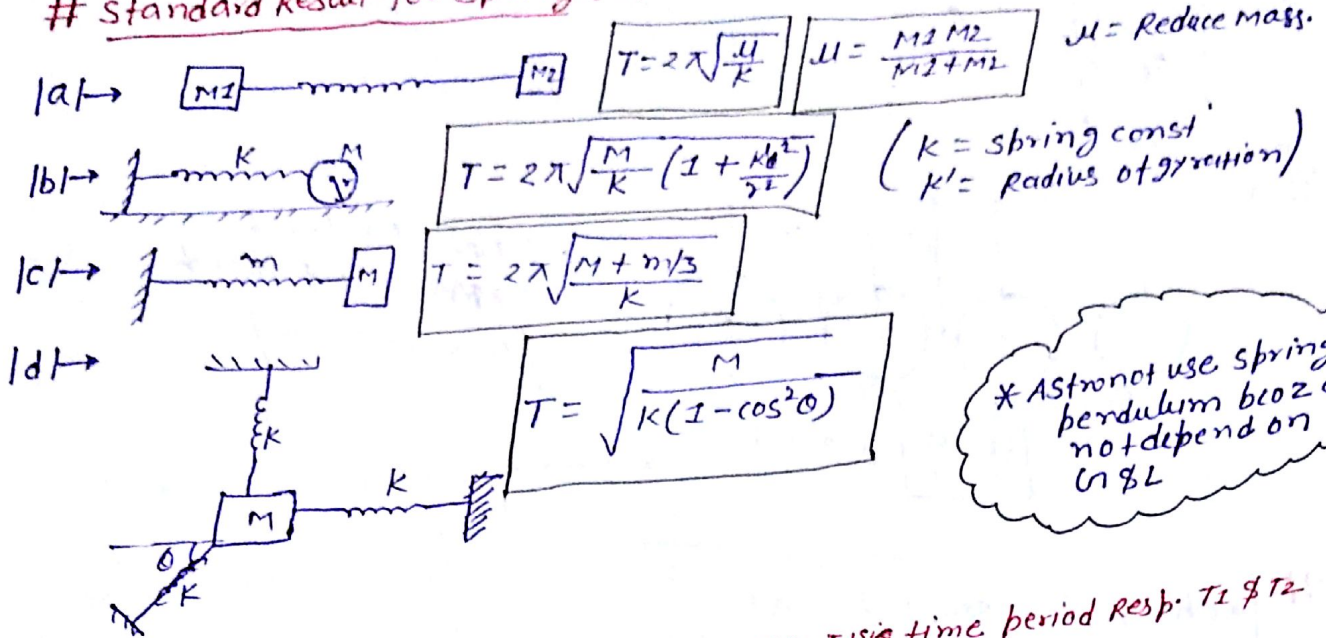 # Standard Result for Spring
|a|→ M1 M2 T = 2π√(μ/K) μ = M1 M2 / M1+M2 μ = Reduce mass.
|b|→ K M r T = 2π√(M/K (1 + K'²/r²)) (K = spring const
K' = Radius of gyration)
|c|→ m M T = 2π√(M + m/3 / K)
|d|→ K K M θ K T = √(M / K(1-cos²θ))
* Astronot use spring
pendulum bcoz
not depend on
G & L
time period Resp. T1 & T2